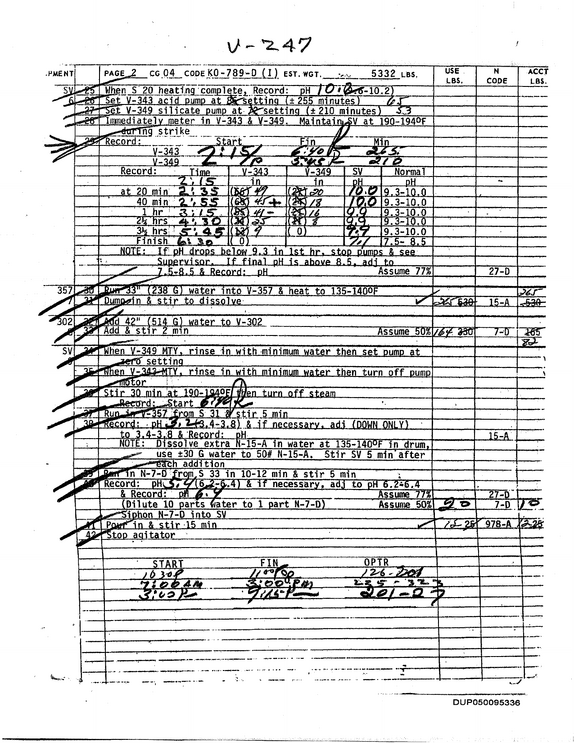 V-247
.PMENT PAGE 2 CG 04 CODE KO-789-D (I) EST. WGT. 5332 LBS. USE LBS. N CODE ACCT LBS.
SV 25 When S 20 heating complete, Record: pH 10. (8.6-10.2)
6 26 Set V-343 acid pump at setting (± 255 minutes) 65
27 Set V-349 silicate pump at setting (± 210 minutes) 53
28 Immediately meter in V-343 & V-349. Maintain SV at 190-194ºF
during strike
29 Record: Start Fin Min
V-343 2:15 P 6:40 P 265
V-349 5:45 P 210
Record: Time V-343 V-349 SV Normal
2:15 in in pH pH
at 20 min 2:35 49 20 10.0 9.3-10.0
40 min 2:55 45 18 10.0 9.3-10.0
1 hr 3:15 41 16 9.9 9.3-10.0
2¼ hrs 4:30 25 8 9.9 9.3-10.0
3½ hrs 5:45 9 (0) 9.9 9.3-10.0
Finish 6:30 (0) 7.5- 8.5
NOTE: If pH drops below 9.3 in 1st hr, stop pumps & see
Supervisor. If final pH is above 8.5, adj to
7.5-8.5 & Record: pH Assume 77% 27-D
357 30 Run 33" (238 G) water into V-357 & heat to 135-140ºF 265
31 Dump in & stir to dissolve 265 530 15-A 530
302 32 Add 42" (514 G) water to V-302
33 Add & stir 2 min Assume 50% 164 330 7-D 165
82
SV 34 When V-349 MTY, rinse in with minimum water then set pump at
zero setting
35 When V-343 MTY, rinse in with minimum water then turn off pump
motor
36 Stir 30 min at 190-194ºF then turn off steam
Record: Start
37 Run in V-357 from S 31 & stir 5 min
38 Record: pH 3.2 (3.4-3.8) & if necessary, adj (DOWN ONLY)
to 3.4-3.8 & Record: pH 15-A
NOTE: Dissolve extra N-15-A in water at 135-140ºF in drum,
use ±30 G water to 50# N-15-A. Stir SV 5 min after
each addition
39 Run in N-7-D from S 33 in 10-12 min & stir 5 min
40 Record: pH 5.4 (6.2-6.4) & if necessary, adj to pH 6.2-6.4
& Record: pH 6.4 Assume 77% 27-D
(Dilute 10 parts water to 1 part N-7-D) Assume 50% 20 7-D 10
Siphon N-7-D into SV
41 Pour in & stir 15 min 12 25 978-A 12 25
42 Stop agitator
START FIN OPTR
1030P 126-
7:00 AM 3:00 PM 235-323
3:00 P 9:15 P 201-27
DUP050095336